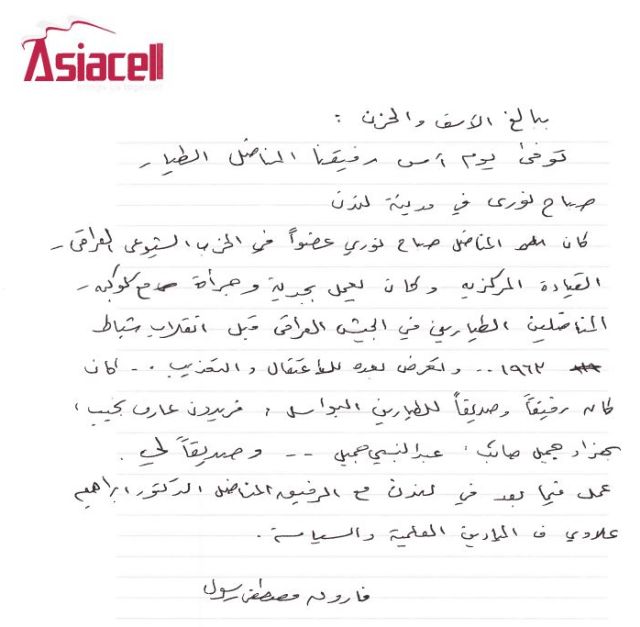 Asiacell
ببالغ الأسف والحزن :
توفى يوم أمس رفيقنا المناضل الطيار
صباح نورى في مدينة لندن
كان المناضل صباح نوري عضواً في الحزب الشيوعي العراقي -
القيادة المركزيه وكان يعمل بجدية وجرأة مع كوكبه -
المناضلين الطيارين في الجيش العراقي قبل انقلاب شباط
١٩٦٣ .. وتعرض بعده للاعتقال والتعذيب .. كان
كان رفيقاً وصديقاً للطيارين البواسل ، فريدون عارف نجيب ،
بهزاد جميل صائب ، عبدالنبي جميل -- وصديقاً لي .
عمل فيما بعد في لندن مع الرفيق المناضل الدكتور ابراهيم
علاوي في الميادين العلمية والسياسة .
فاروق مصطفى رسول